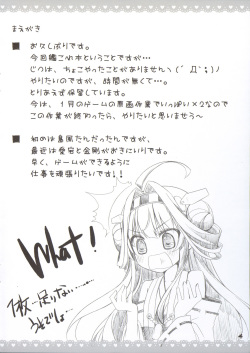 まえがき
■ おひさしぶりです。
今回艦これ本ということですが…
じつは、ちょこやったことがありません＼(´Д`;)ノ
やりたいのですが、時間が無くて…。
とりあえず保留しています。
今は、1月のゲームの原画作業でいっぱい×2なので
この作業が終わったら、やりたいと思いまぅ～
■ 初めは島風たんだったんですが、
最近は愛宕と金剛がおきにいりです。
早く、ゲームができるように
仕事を頑張りたいです！！
What!
1枚…足りない……